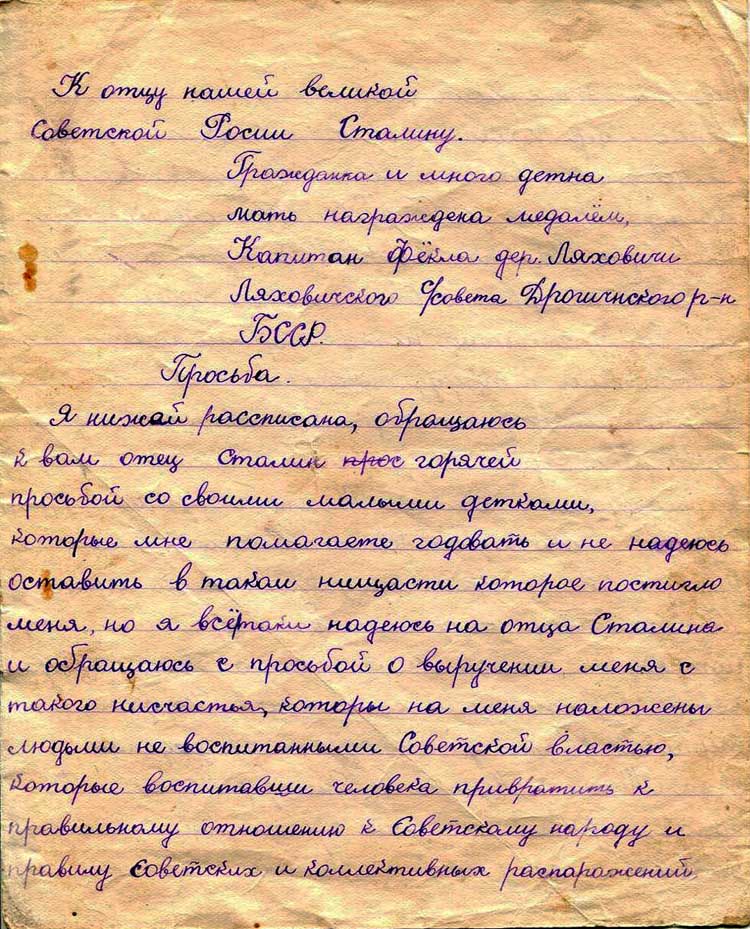 К отцу нашей великой
советской Росии Сталину.
Гражданка и много детна
мать награждена медалём,
Капитан Фёкла дер. Ляховичи
Ляховичского с/совета Дрогичнского р-н
БССР.
Просьба.
Я нижай рассписана, обращаюсь
к вам отец Сталин прос горячей
просьбой со своими малыми детками,
которые мне помагаете годовать и не надеюсь
оставить в такаи нищасти которое постигло
меня, но я всётаки надеюсь на отца Сталина
и обращаюсь с просьбой о выручении меня с
такого нисчастья, которы на меня наложены
людьми не воспитанными Советской властью,
которые воспитавши человека привратить к
правильному отношению к советскому народу и
правилу советских и коллективных распаражений